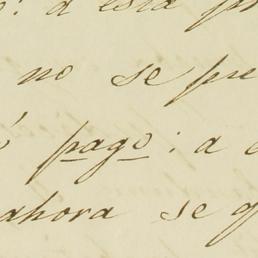 : a esta
no se pre
pago : a
ahora se q